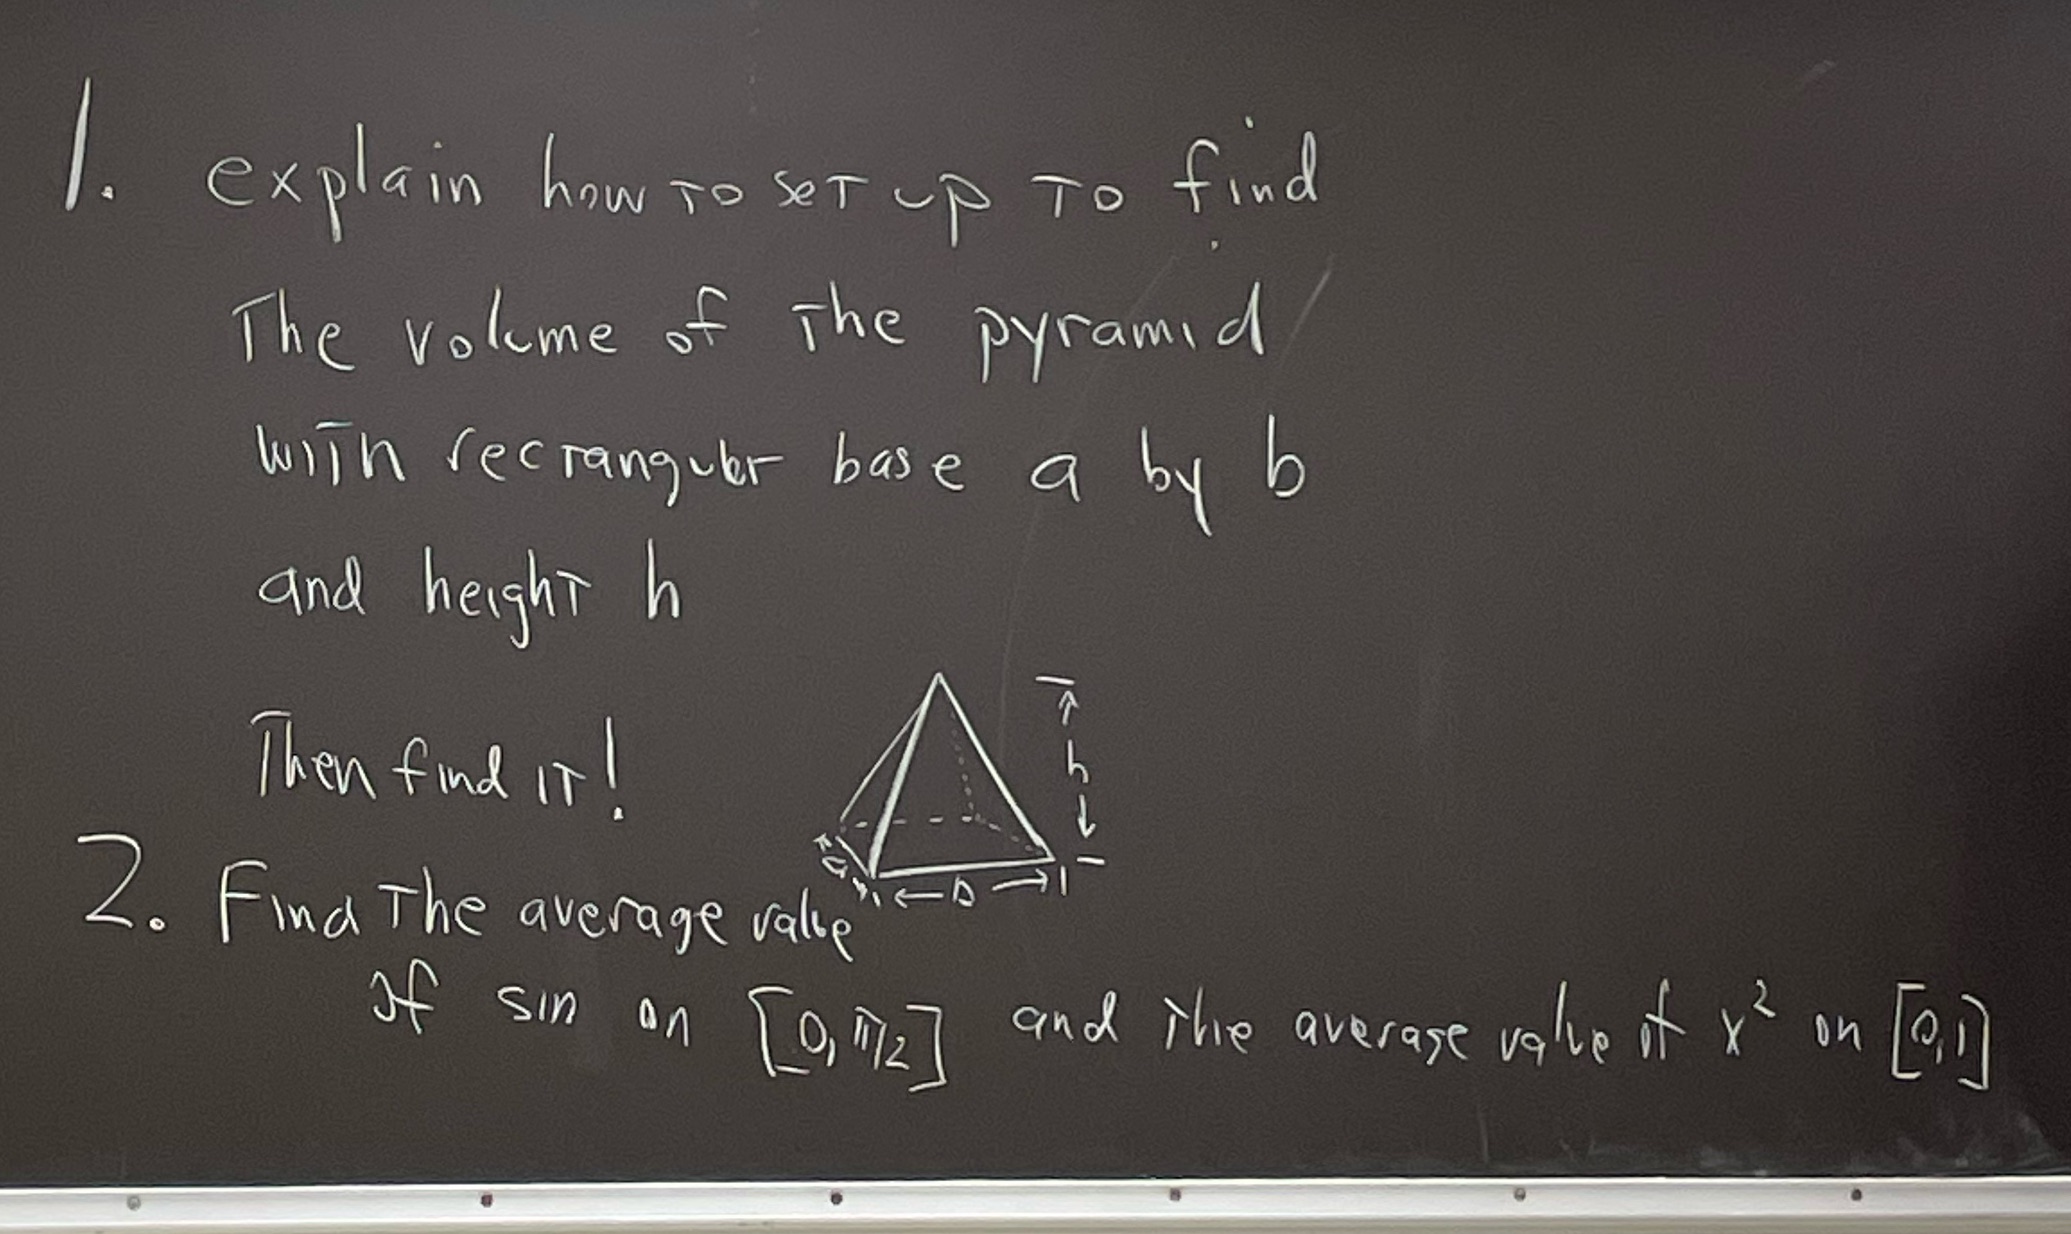 1. explain how to set up to find
The volume of the pyramid
with rectangular base a by b
and height h
Then find it!
h
a
b
2. Find the average value
of sin on [0, π/2] and the average value of x² on [0,1]